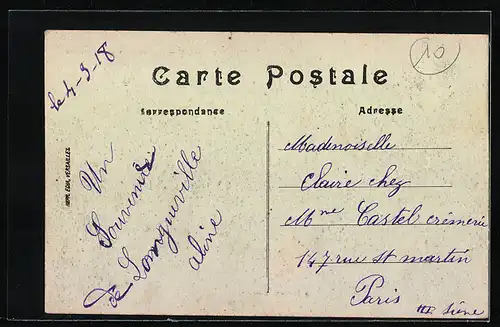 le 4-3-18
10
Carte Postale
Correspondance
Adresse
Un
Souvenir
de Longueville
aline
Mademoiselle
Claire chez
Mme Castel crémerie
147 rue St martin
Paris
Seine